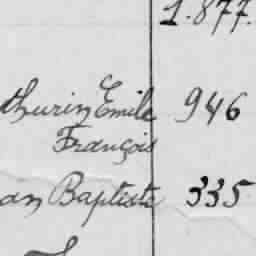 1.877.
thurin Emile 946
François
an Baptiste 335